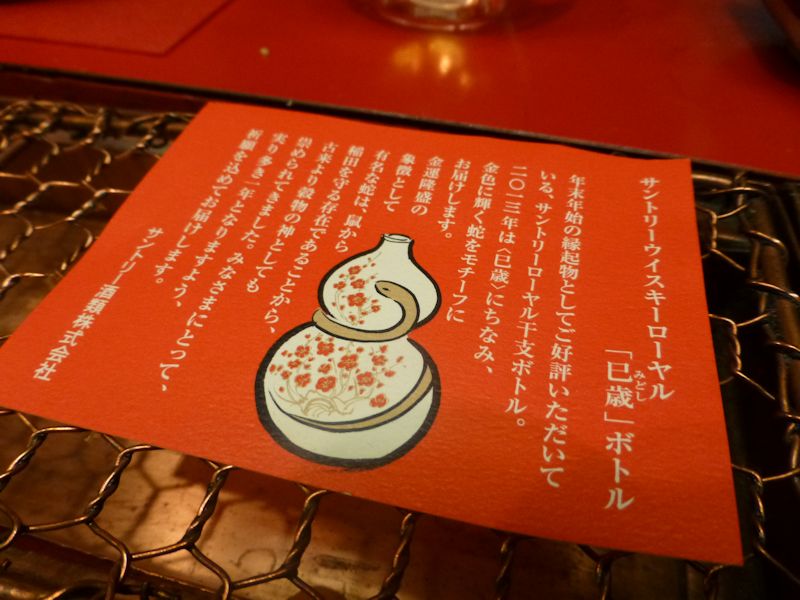 サントリーウイスキーローヤル
「巳歳」ボトル
みどし
年末年始の縁起物としてご好評いただいて
いる、サントリーローヤル干支ボトル。
二〇一三年は〈巳歳〉にちなみ、
金色に輝く蛇をモチーフに
お届けします。
金運隆盛の
象徴として
有名な蛇は、鼠から
稲田を守る存在であることから、
古来より穀物の神としても
崇められてきました。みなさまにとって、
実り多き一年となりますよう、
祈願を込めてお届けします。
サントリー酒類株式会社